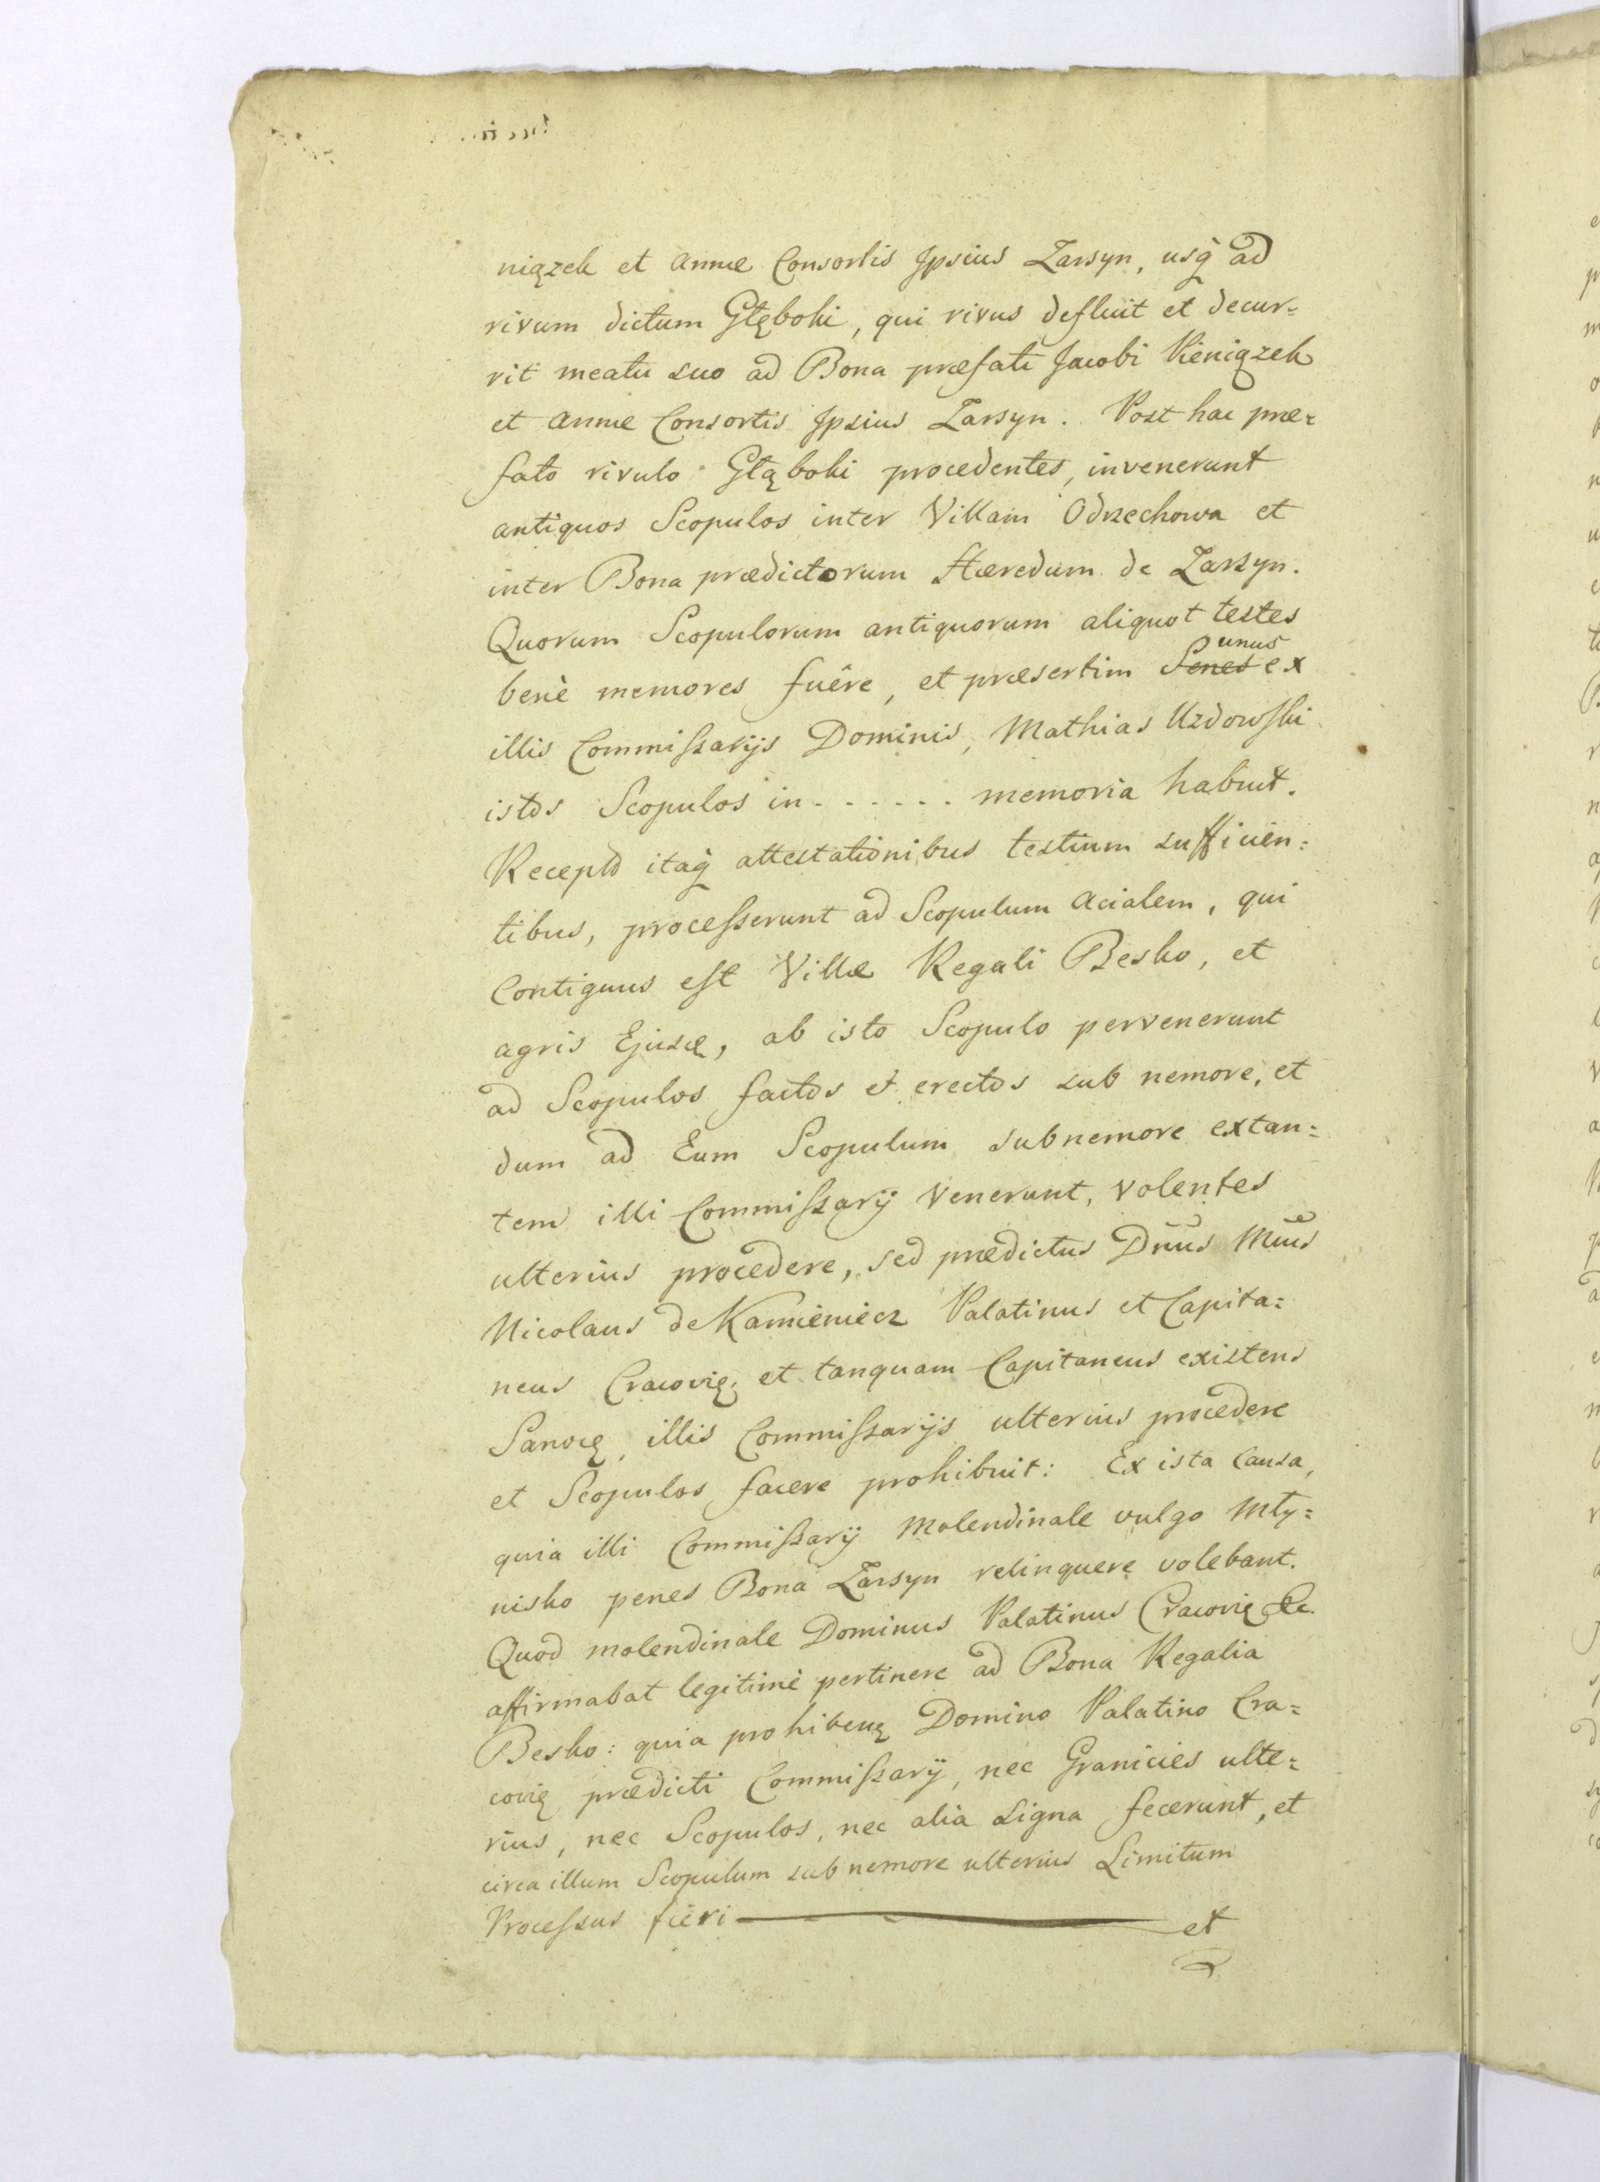 niązek et Annæ Consortis Jpsius Zarsyn, usq̃ ad
rivum dictum Głęboki, qui rivus defluit et decur=
rit meatu suo ad Bona præfati Jacobi Pieniązek
et Annæ Consortis Jpsius Zarsyn. Post hac præ=
fato rivulo Głąboki procedentes, invenerunt
antiquos Scopulos inter Villam Odrzechowa et
inter Bona prædictorum Hæredum de Zarsyn.
Quorum Scopulorum antiquorum aliquot testes
benè memores fuêre, et præsertim Senes unus ex
illis Commissarijs Dominis, Mathias Uzdowski
istos Scopulos in - - - - - - memoria habuit.
Recepto itaq̃ attestationibus testium sufficien=
tibus, processerunt ad Scopulum Acialem, qui
Contiguus est Villæ Regali Besko, et
agris Ejusq, ab isto Scopulo pervenerunt
ad Scopulos factos et erectos sub nemore, et
dum ad Eum Scopulum sub nemore extan=
tem illi Commissarij venerunt, volentes
ulterius procedere, sed prædictus Dnũs Mũus
Nicolaus de Kamieniecz Palatinus et Capita=
neus Cracovię, et tanquam Capitaneus existens
Sanocę, illis Commissarijs ulterius procedere
et Scopulos facere prohibuit: Ex ista Causa,
quia illi Commissarij Molendinale vulgo Mły=
nisko penes Bona Zarsyn relinquere volebant.
Quod molendinale Dominus Palatinus Cracovię &c.
affirmabat legitimè pertinere ad Bona Regalia
Besko: quia prohibenę Domino Palatino Cra=
covię prædicti Commissarij, nec Granicies ulte=
rius, nec Scopulos, nec alia Signa fecerunt, et
circa illum Scopulum sub nemore ulterius Limitum
Processus fieri ——— et